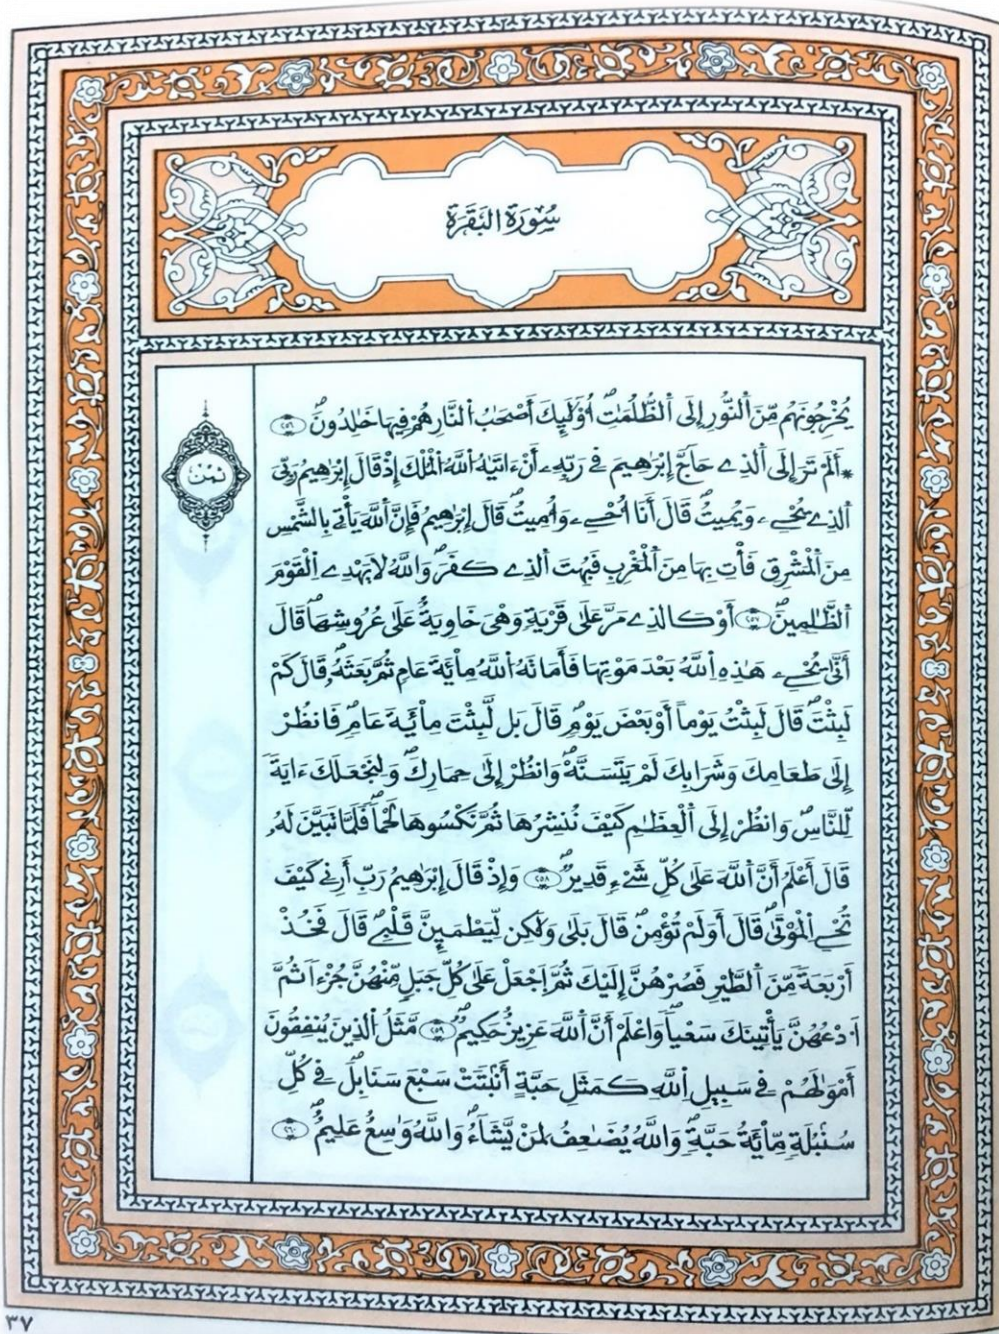 سُورَةُ البَقَرَةِ
يُخْرِجُونَهُم مِّنَ ٱلنُّورِ إِلَى ٱلظُّلُمَٰتِۖ أُوْلَٰٓئِكَ أَصْحَٰبُ ٱلنَّارِ هُمْ فِيهَا خَٰلِدُونَۖ ۝٢٥٦
ثمن
*أَلَمْ تَرَ إِلَى ٱلَّذِے حَآجَّ إِبْرَٰهِيمَ فِے رَبِّهِۦٓ أَنْ ءَاتَيٰهُ ٱللَّهُ ٱلْمُلْكَ إِذْ قَالَ إِبْرَٰهِيمُ رَبِّيَ
ٱلَّذِے يُحْيِۦ وَيُمِيتُۖ قَالَ أَنَآ أُحْيِۦ وَأُمِيتُۖ قَالَ إِبْرَٰهِيمُ فَإِنَّ ٱللَّهَ يَأْتِے بِالشَّمْسِ
مِنَ ٱلْمَشْرِقِ فَأْتِ بِهَا مِنَ ٱلْمَغْرِبِ فَبُهِتَ ٱلَّذِے كَفَرَۖ وَاللَّهُ لَا يَهْدِے ٱلْقَوْمَ
ٱلظَّٰلِمِينَۖ ۝٢٥٧ أَوْ كَالَّذِے مَرَّ عَلَىٰ قَرْيَةٖ وَهْيَ خَاوِيَةٌ عَلَىٰ عُرُوشِهَاۖ قَالَ
أَنَّىٰ يُحْيِۦ هَٰذِهِ ٱللَّهُ بَعْدَ مَوْتِهَاۖ فَأَمَاتَهُ ٱللَّهُ مِاْئَةَ عَامٖ ثُمَّ بَعَثَهُۥۖ قَالَ كَمْ
لَبِثْتَۖ قَالَ لَبِثْتُ يَوْماً أَوْ بَعْضَ يَوْمٖۖ قَالَ بَل لَّبِثْتَ مِاْئَةَ عَامٖۖ فَانظُرْ
إِلَىٰ طَعَامِكَ وَشَرَابِكَ لَمْ يَتَسَنَّهْۖ وَانظُرْ إِلَىٰ حِمَارِكَۖ وَلِنَجْعَلَكَ ءَايَةً
لِّلنَّاسِۖ وَانظُرْ إِلَى ٱلْعِظَٰمِ كَيْفَ نُنشِرُهَا ثُمَّ نَكْسُوهَا لَحْماًۖ فَلَمَّا تَبَيَّنَ لَهُۥ
قَالَ أَعْلَمُ أَنَّ ٱللَّهَ عَلَىٰ كُلِّ شَےْءٖ قَدِيرٌۖ ۝٢٥٨ وَإِذْ قَالَ إِبْرَٰهِيمُ رَبِّ أَرِنِے كَيْفَ
تُحْيِ ٱلْمَوْتَىٰۖ قَالَ أَوَلَمْ تُؤْمِنۖ قَالَ بَلَىٰ وَلَٰكِن لِّيَطْمَئِنَّ قَلْبِےۖ قَالَ فَخُذْ
أَرْبَعَةً مِّنَ ٱلطَّيْرِ فَصُرْهُنَّ إِلَيْكَ ثُمَّ ٱجْعَلْ عَلَىٰ كُلِّ جَبَلٖ مِّنْهُنَّ جُزْءاً ثُمَّ
ٱدْعُهُنَّ يَأْتِينَكَ سَعْياًۖ وَاعْلَمْ أَنَّ ٱللَّهَ عَزِيزٌ حَكِيمٌۖ ۝٢٥٩ مَّثَلُ ٱلَّذِينَ يُنفِقُونَ
أَمْوَٰلَهُمْ فِے سَبِيلِ ٱللَّهِ كَمَثَلِ حَبَّةٍ أَنۢبَتَتْ سَبْعَ سَنَابِلَ فِے كُلِّ
سُنۢبُلَةٖ مِّاْئَةُ حَبَّةٖۖ وَاللَّهُ يُضَٰعِفُ لِمَنْ يَّشَآءُۖ وَاللَّهُ وَٰسِعٌ عَلِيمٌۖ ۝٢٦٠
٣٧